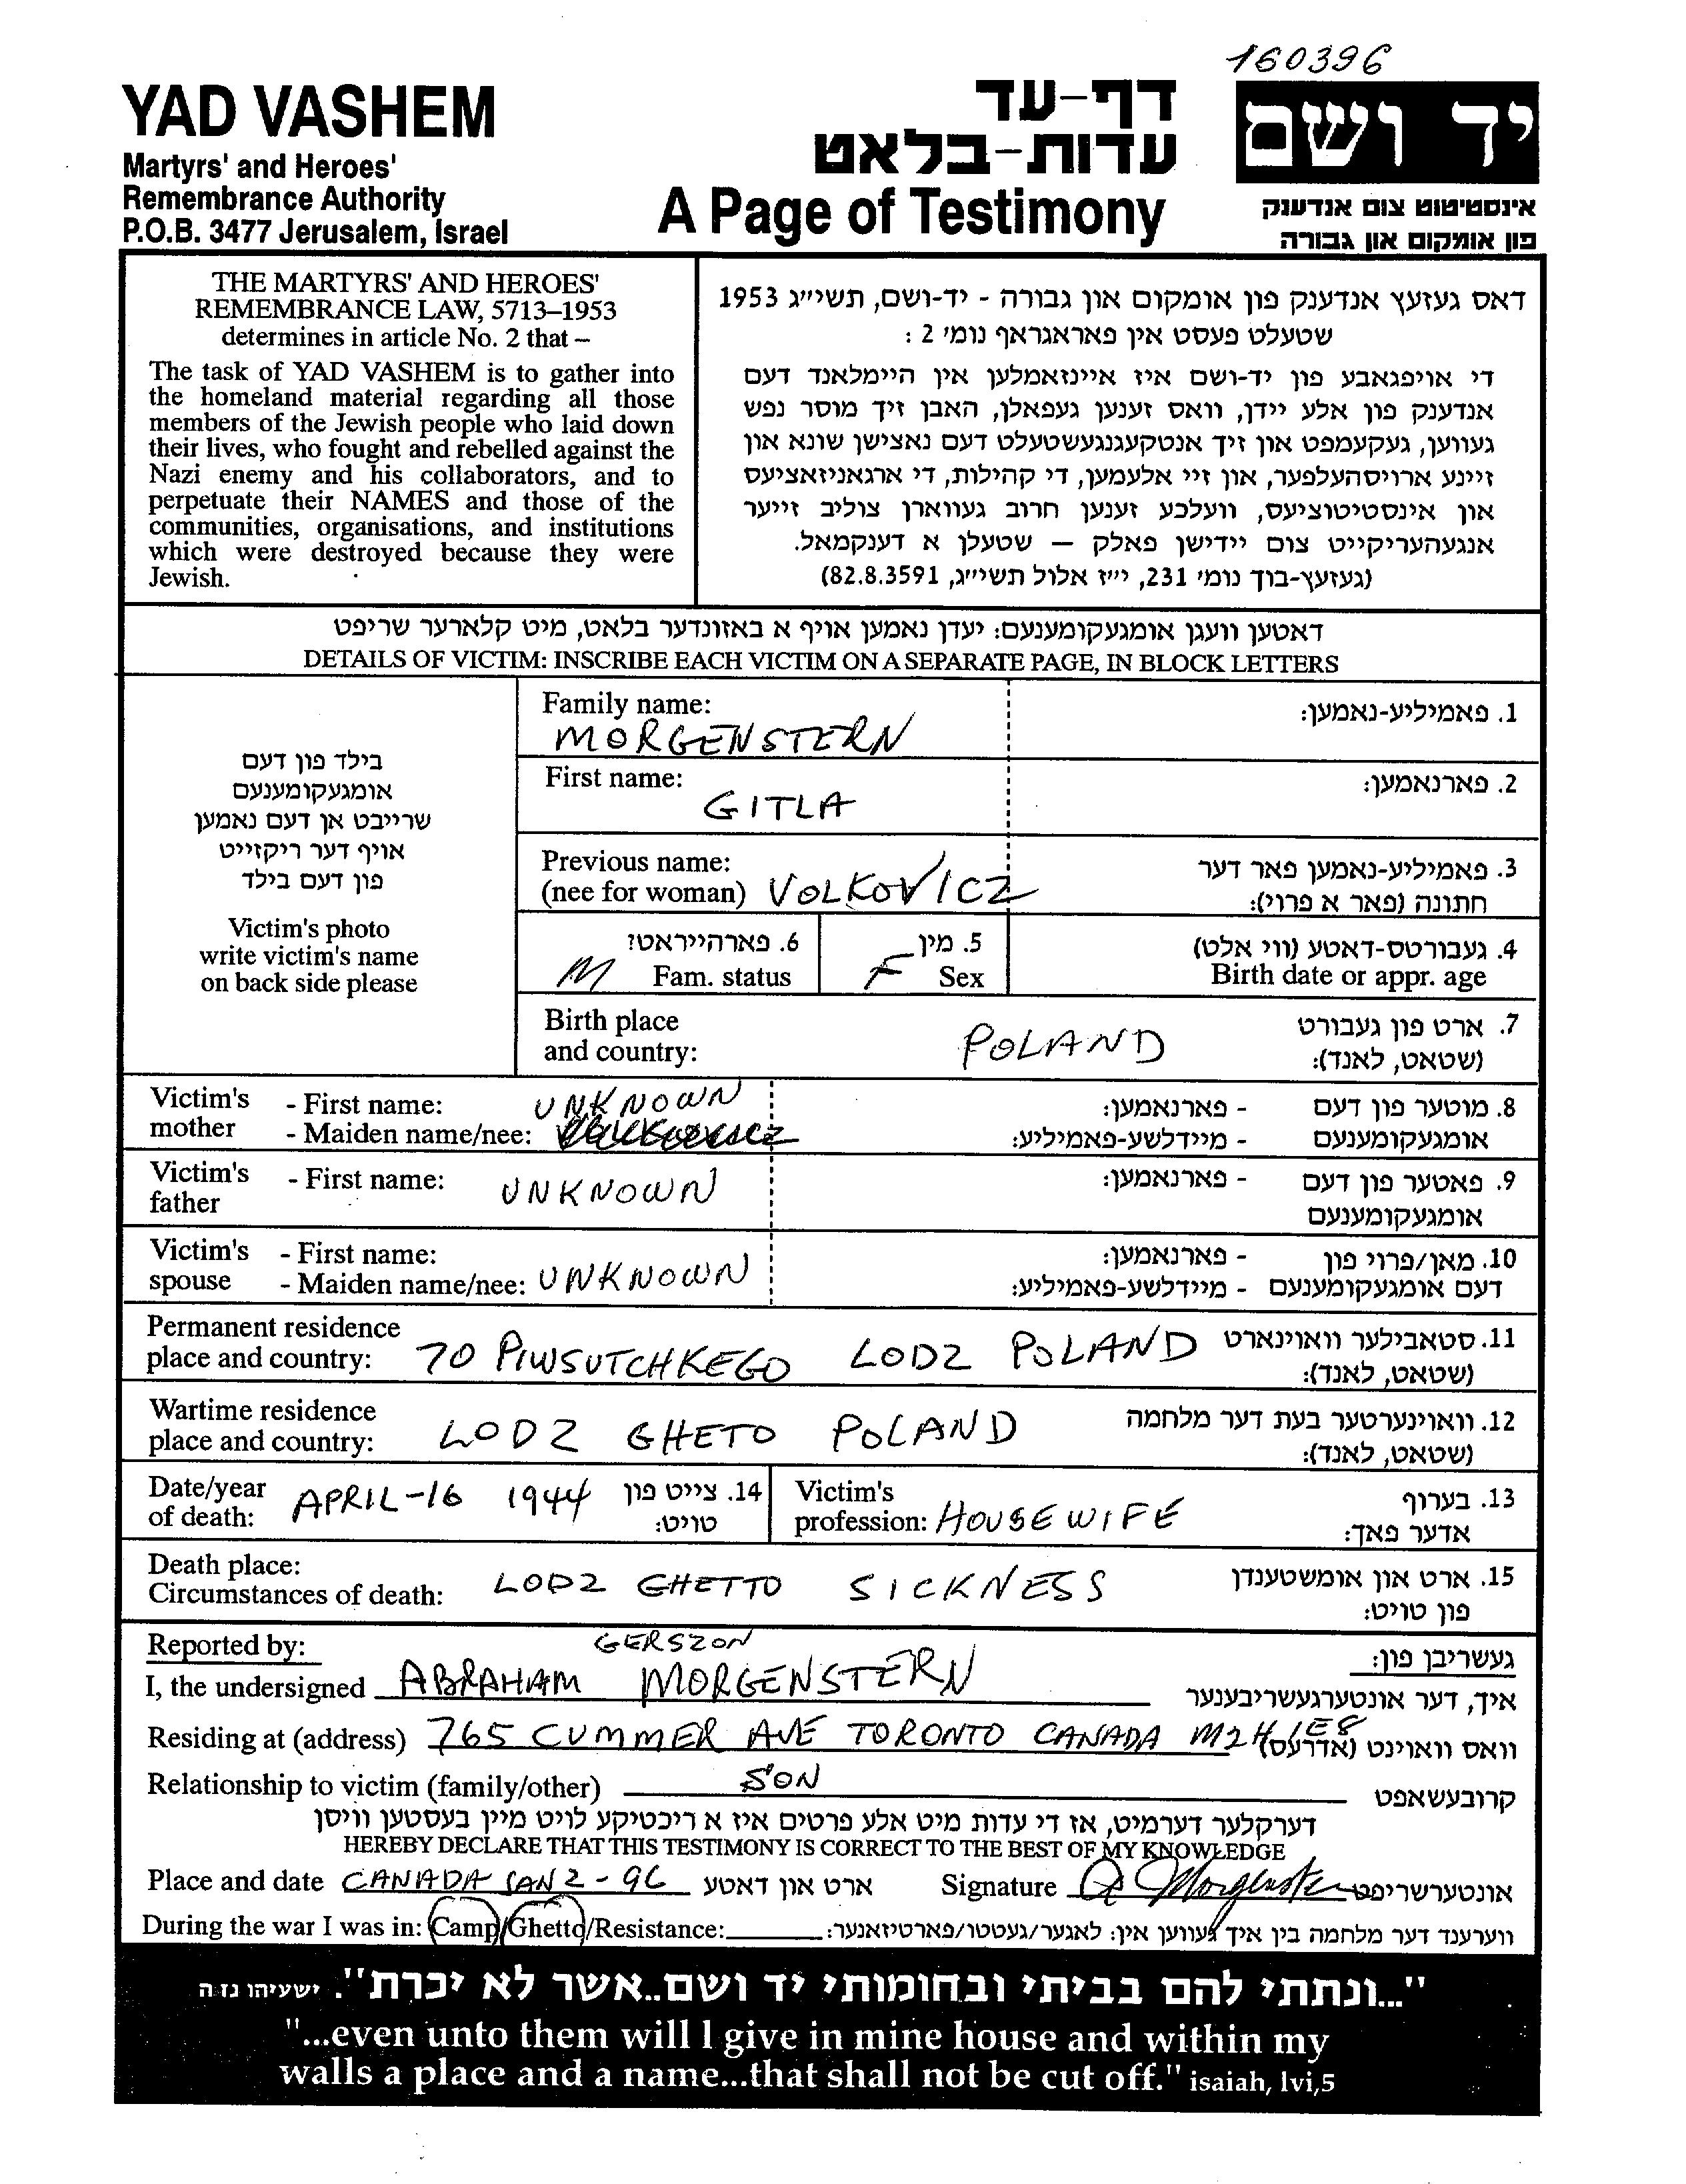 160396
YAD VASHEM
Martyrs' and Heroes'
Remembrance Authority
P.O.B. 3477 Jerusalem, Israel
דף-עד
עדות-בלאט
A Page of Testimony
יד ושם
אינסטיטוט צום אנדענק
פון אומקום און גבורה
THE MARTYRS' AND HEROES'
REMEMBRANCE LAW, 5713–1953
determines in article No. 2 that –
The task of YAD VASHEM is to gather into
the homeland material regarding all those
members of the Jewish people who laid down
their lives, who fought and rebelled against the
Nazi enemy and his collaborators, and to
perpetuate their NAMES and those of the
communities, organisations, and institutions
which were destroyed because they were
Jewish.
דאס געזעץ אנדענק פון אומקום און גבורה - יד-ושם, תשי״ג 1953
שטעלט פעסט אין פאראגראף נומ׳ 2 :
די אויפגאבע פון יד-ושם איז איינזאמלען אין היימלאנד דעם
אנדענק פון אלע יידן, וואס זענען געפאלן, האבן זיך מוסר נפש
געווען, געקעמפט און זיד אנטקעגנגעשטעלט דעם נאצישן שונא און
זיינע ארויסהעלפער, און זיי אלעמען, די קהילות, די ארגאניזאציעס
און אינסטיטוציעס, וועלכע זענען חרוב געווארן צוליב זייער
אנגעהעריקייט צום יידישן פאלק — שטעלן א דענקמאל.
(געזעץ-בוך נומ׳ 231, י״ז אלול תשי״ג, 82.8.3591)
דאטען וועגן אומגעקומענעם: יעדן נאמען אויף א באזונדער בלאט, מיט קלארער שריפט
DETAILS OF VICTIM: INSCRIBE EACH VICTIM ON A SEPARATE PAGE, IN BLOCK LETTERS
בילד פון דעם
אומגעקומענעם
שרייבט אן דעם נאמען
אויף דער ריקזייט
פון דעם בילד
Victim's photo
write victim's name
on back side please
Family name: 1. פאמיליע-נאמען:
MORGENSTERN
First name: 2. פארנאמען:
GITLA
Previous name: 3. פאמיליע-נאמען פאר דער
(nee for woman) VOLKOVICZ חתונה (פאר א פרוי):
6. פארהייראט? 5. מין 4. געבורטס-דאטע (ווי אלט)
M Fam. status F Sex Birth date or appr. age
Birth place 7. ארט פון געבורט
and country: POLAND (שטאט, לאנד):
Victim's - First name: UNKNOWN - פארנאמען: 8. מוטער פון דעם
mother - Maiden name/nee: - מיידלשע-פאמיליע: אומגעקומענעם
Victim's - First name: UNKNOWN - פארנאמען: 9. פאטער פון דעם
father אומגעקומענעם
Victim's - First name: - פארנאמען: 10. מאן/פרוי פון
spouse - Maiden name/nee: UNKNOWN - מיידלשע-פאמיליע: דעם אומגעקומענעם
Permanent residence 11. סטאבילער וואוינארט
place and country: 70 PIWSUTCHKEGO LODZ POLAND (שטאט, לאנד):
Wartime residence 12. וואוינערטער בעת דער מלחמה
place and country: LODZ GHETO POLAND (שטאט, לאנד):
Date/year APRIL-16 1944 14. צייט פון Victim's 13. בערוף
of death: טויט: profession: HOUSEWIFE אדער פאך:
Death place: 15. ארט און אומשטענדן
Circumstances of death: LODZ GHETTO SICKNESS פון טויט:
Reported by: GERSZON געשריבן פון:
I, the undersigned ABRAHAM MORGENSTERN איך, דער אונטערגעשריבענער
Residing at (address) 765 CUMMER AVE TORONTO CANADA M2H 1E8 וואס וואוינט (אדרעס)
Relationship to victim (family/other) SON קרובעשאפט
דערקלער דערמיט, אז די עדות מיט אלע פרטים איז א ריכטיקע לויט מיין בעסטען וויסן
HEREBY DECLARE THAT THIS TESTIMONY IS CORRECT TO THE BEST OF MY KNOWLEDGE
Place and date CANADA JAN 2 - 96 ארט און דאטע Signature A Morgenstern אונטערשריפט
During the war I was in: Camp/Ghetto/Resistance: ווערענד דער מלחמה בין איך געווען אין: לאגער/געטטו/פארטיזאנער:
"...ונתתי להם בביתי ובחומותי יד ושם..אשר לא יכרת". ישעיהו נז ה
"...even unto them will I give in mine house and within my
walls a place and a name...that shall not be cut off." isaiah, lvi,5